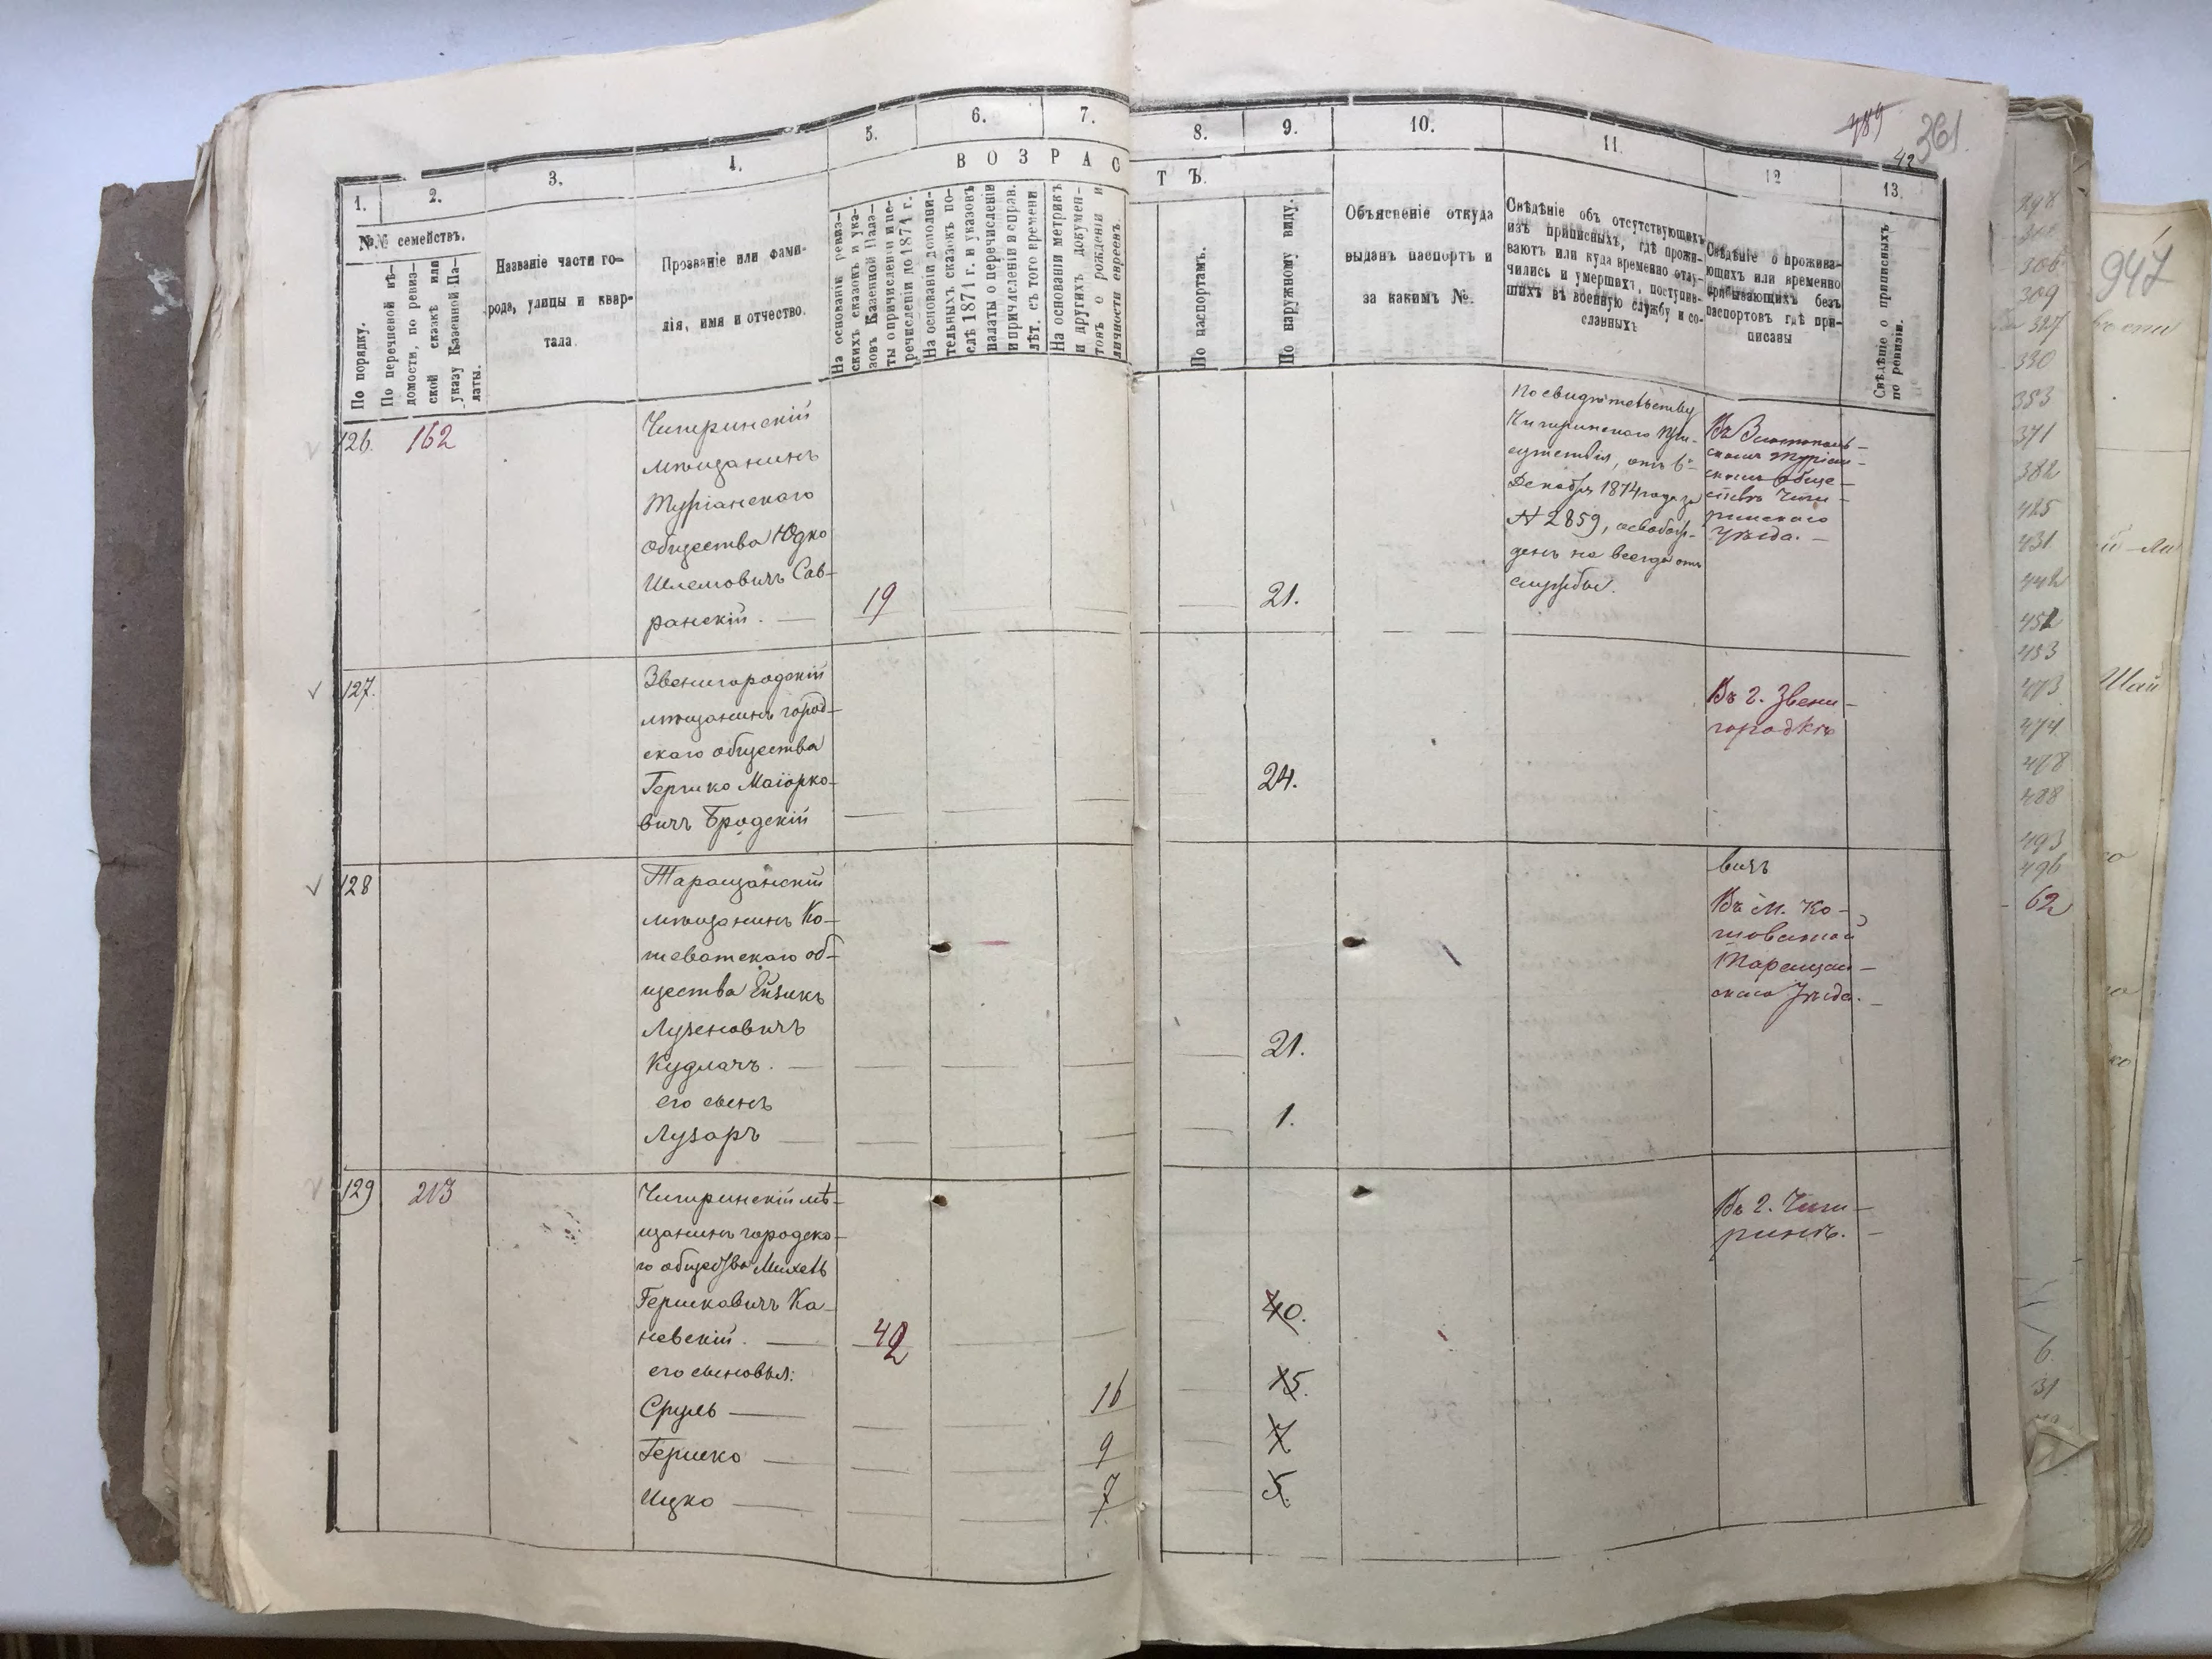 489
361
42
1.
2.
3.
4.
5.
6.
7.
8.
9.
10.
11.
12
13.
№№ семействъ.
По порядку.
По перечневой вѣ-
домости, по ревиз-
ской сказкѣ или
указу Казенной Па-
латы.
Названіе части го-
рода, улицы и квар-
тала.
Прозваніе или фами-
лія, имя и отчество.
ВОЗРАСТЪ.
На основаніи ревиз-
скихъ сказокъ и ука-
зовъ Казенной Пала-
ты о причисленіи и пе-
речисленіи до 1871 г.
На основаніи дополни-
тельныхъ сказокъ по-
слѣ 1871 г. и указовъ
палаты о перечисленіи
и причисленіи и справ.
лѣт. съ того времени
На основаніи метрикъ
и другихъ докумен-
товъ о рожденіи и
личности евреевъ.
По паспортамъ.
По наружному виду.
Объясненіе откуда
выданъ паспортъ и
за какимъ №.
Свѣдѣніе объ отсутствующихъ
изъ приписныхъ, гдѣ прожи-
ваютъ или куда временно отлу-
чились и умершихъ, поступив-
шихъ въ военную службу и со-
сланныхъ
Свѣдѣніе о прожива-
ющихъ или временно
пребывающихъ безъ
паспортовъ гдѣ при-
писаны
Свѣдѣніе о приписныхъ
по ревизіи.
126. 162
Чигиринскій
мѣщанинъ
Туріанскаго
общества Юдко
Шлемовичъ Сав-
ранскій. — 19 21.
По свидѣтельству
Чигиринскаго При-
сутствія, отъ 6
Декабря 1874 года за
№ 2859, освобож-
денъ на всегда отъ
службы.
Въ Златополь-
скомъ Туріан-
скомъ обще-
ствѣ Чиги-
ринскаго
Уѣзда. —
127.
Звенигородскій
мѣщанинъ город-
скаго общества
Гершко Маіорко-
вичъ Бродскій 24.
Въ г. Звени-
городкѣ
128
Таращанскій
мѣщанинъ Ко-
шеватскаго об-
щества Ейзикъ
Лузеновичъ
Кудлачъ. — 21.
его сынъ
Лузаръ — 1.
вичъ
Въ м. Ко-
шоватой
Таращан-
скаго Уѣзда. —
129 213
Чигиринскій мѣ-
щанинъ городско-
го общества Михель
Гершковичъ Ка-
невскій. — 42 40.
его сыновья:
Сруль — 16 15.
Гершко — 9 7
Ицко — 7 5.
Въ г. Чиги-
ринѣ. —
947
298
306
309
327
330
353
371
382
425
431
442
452
453
473
474
478
488
493
496
62
6
31
Шай